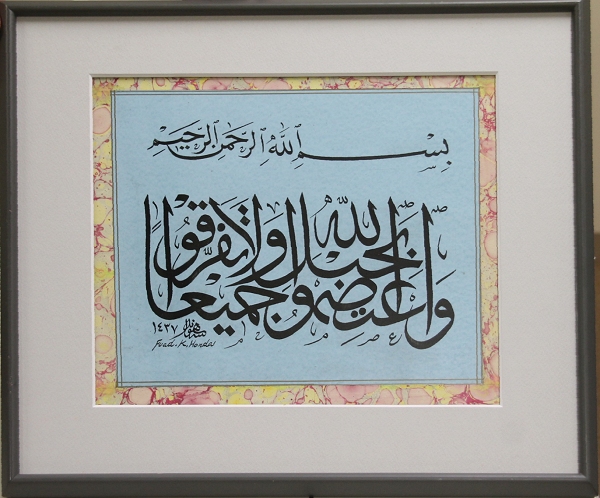 بِسْمِ اللَّهِ الرَّحْمَنِ الرَّحِيمِ
وَاعْتَصِمُوا بِحَبْلِ اللَّهِ جَمِيعًا وَلَا تَفَرَّقُوا
١٤٣٧
Fuad. K. Honda